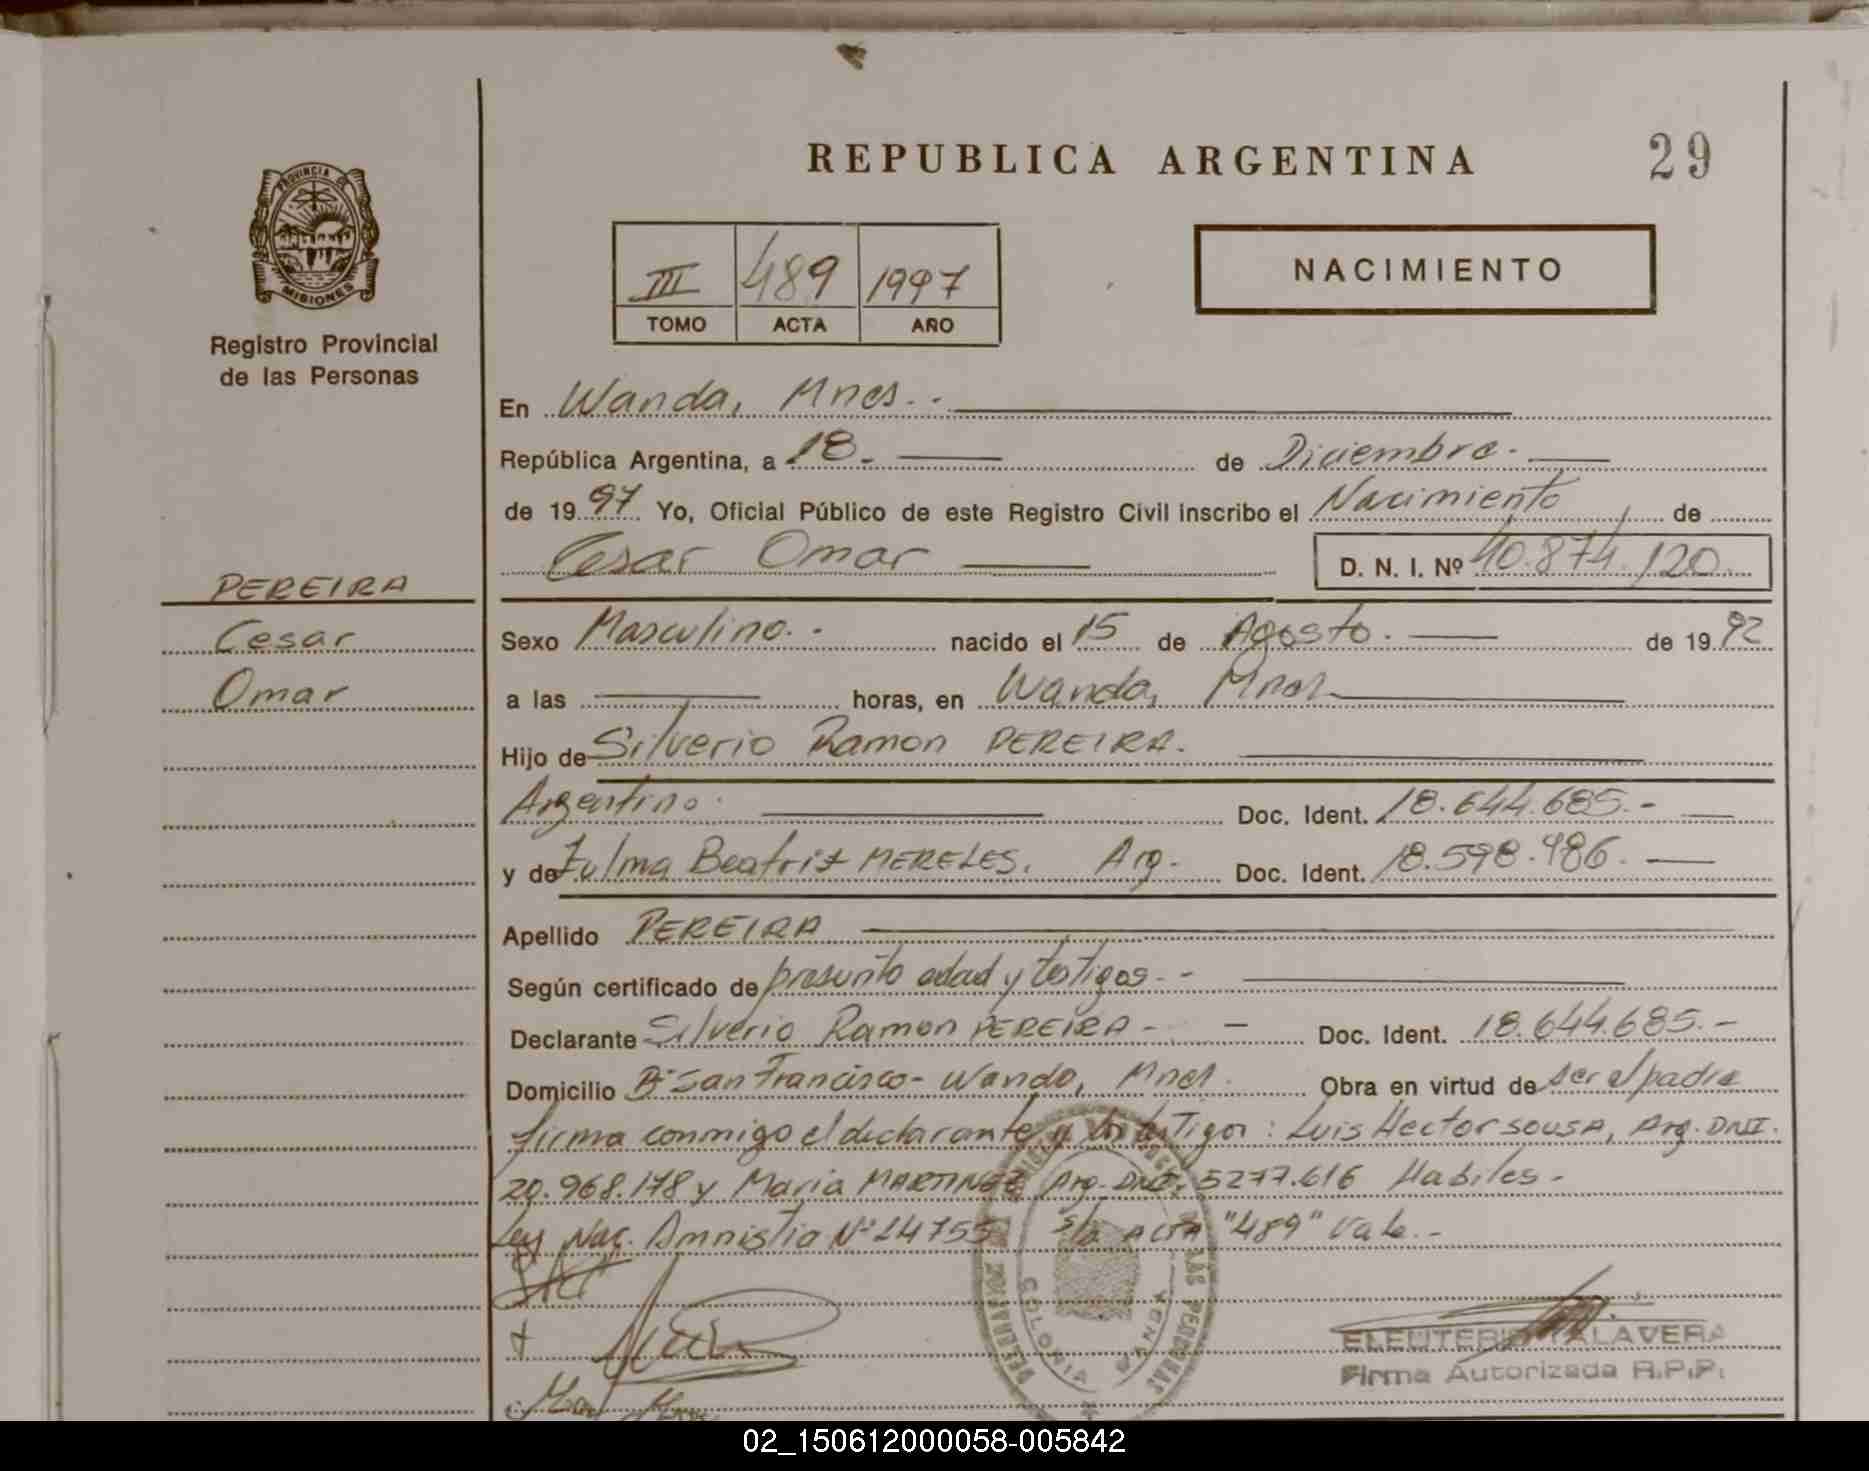 REPUBLICA ARGENTINA
29
PROVINCIA DE
MISIONES
Registro Provincial
de las Personas
III 489 1997
TOMO ACTA AÑO
NACIMIENTO
En Wanda, Mnes.
República Argentina, a 18.- de Diciembre.-
de 1997 Yo, Oficial Público de este Registro Civil inscribo el Nacimiento de
Cesar Omar D. N. I. Nº 40.874.120
PEREIRA
Cesar
Omar
Sexo Masculino.- nacido el 15 de Agosto. de 1992
a las horas, en Wanda, Mnes.
Hijo de Silverio Ramon PEREIRA.
Argentino. Doc. Ident. 18.644.685.-
y de Zulma Beatriz MERELES. Arg. Doc. Ident. 18.598.986.
Apellido PEREIRA
Según certificado de presunta edad y testigos.-
Declarante Silverio Ramon PEREIRA.- Doc. Ident. 18.644.685.-
Domicilio Bº San Francisco- Wanda, Mnes. Obra en virtud de ser el padre
firma conmigo el declarante y los testigos: Luis Hector SOUSA, Arg. DNI.
20.968.178 y Maria MARTINEZ Arg. DNI. 5277.616 Habiles-
Ley Nac. Amnistia Nº 24755 s/b ACTA "489" Vale.-
COLONIA WANDA
LAS PERSONAS
ELEUTERIO TALAVERA
Firma Autorizada R.P.P.
02_150612000058-005842